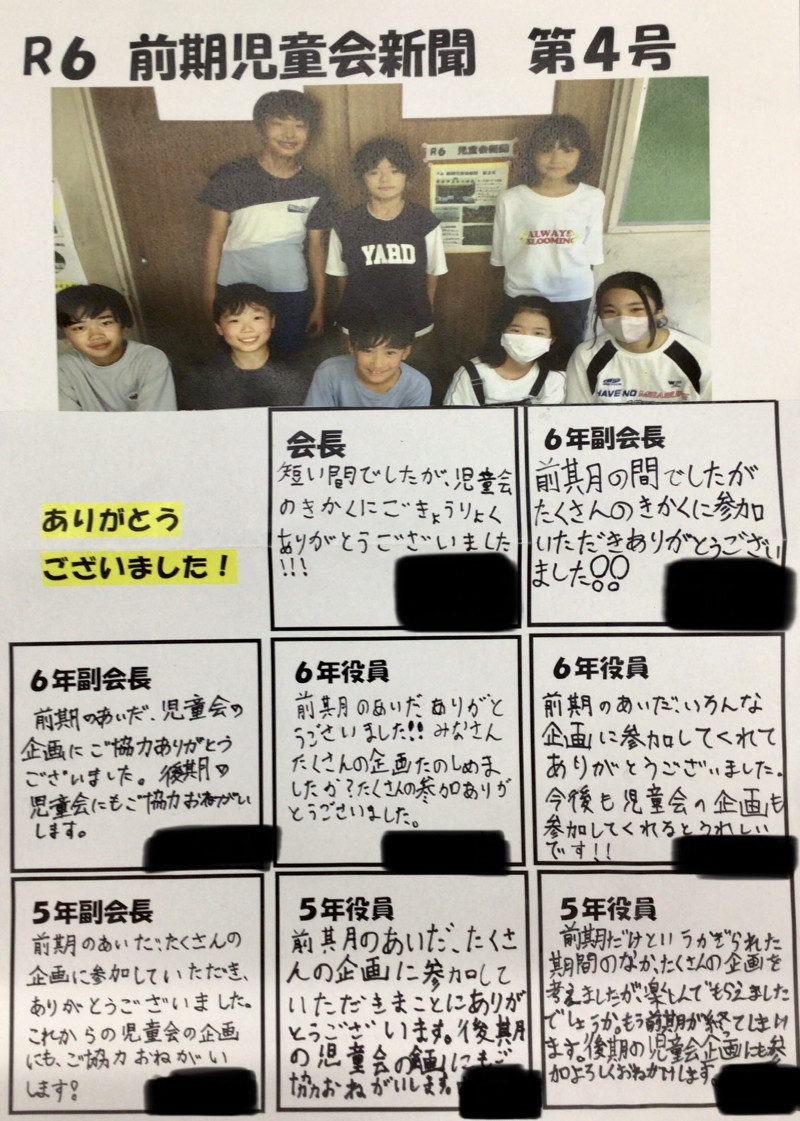 R6 前期児童会新聞 第4号
R6 児童会新聞
YARD
ALWAYS
BLOOMING
HAVE NO
ありがとう
ございました！
会長
短い間でしたが、児童会
のきかくにごきょうりょく
ありがとうございました
!!!
6年副会長
前期の間でしたが
たくさんのきかくに参加
いただきありがとうござい
ました!!
6年副会長
前期のあいだ、児童会の
企画にご協力ありがとう
ございました。後期の
児童会にもご協力おねがい
します。
6年役員
前期のあいだありがと
うございました!! みなさん
たくさんの企画たのしめま
したか？たくさんの参加ありが
とうございました。
6年役員
前期のあいだ、いろんな
企画に参加してくれて
ありがとうございました。
今後も児童会の企画も
参加してくれるとうれしい
です!!
5年副会長
前期のあいだ、たくさんの
企画に参加していただき、
ありがとうございました。
これからの児童会の企画
にも、ご協力おねがい
します!
5年役員
前期のあいだ、たくさ
んの企画に参加して
いただきまことにありが
とうございます。後期
の児童会の企画にもご
協力おねがいします。
5年役員
前期だけというかぎられた
期間のなか、たくさんの企画を
考えましたが、楽しんでもらえました
でしょうか。もう前期が終てしまい
ます。後期の児童会企画にも参
加よろしくおねがいします。